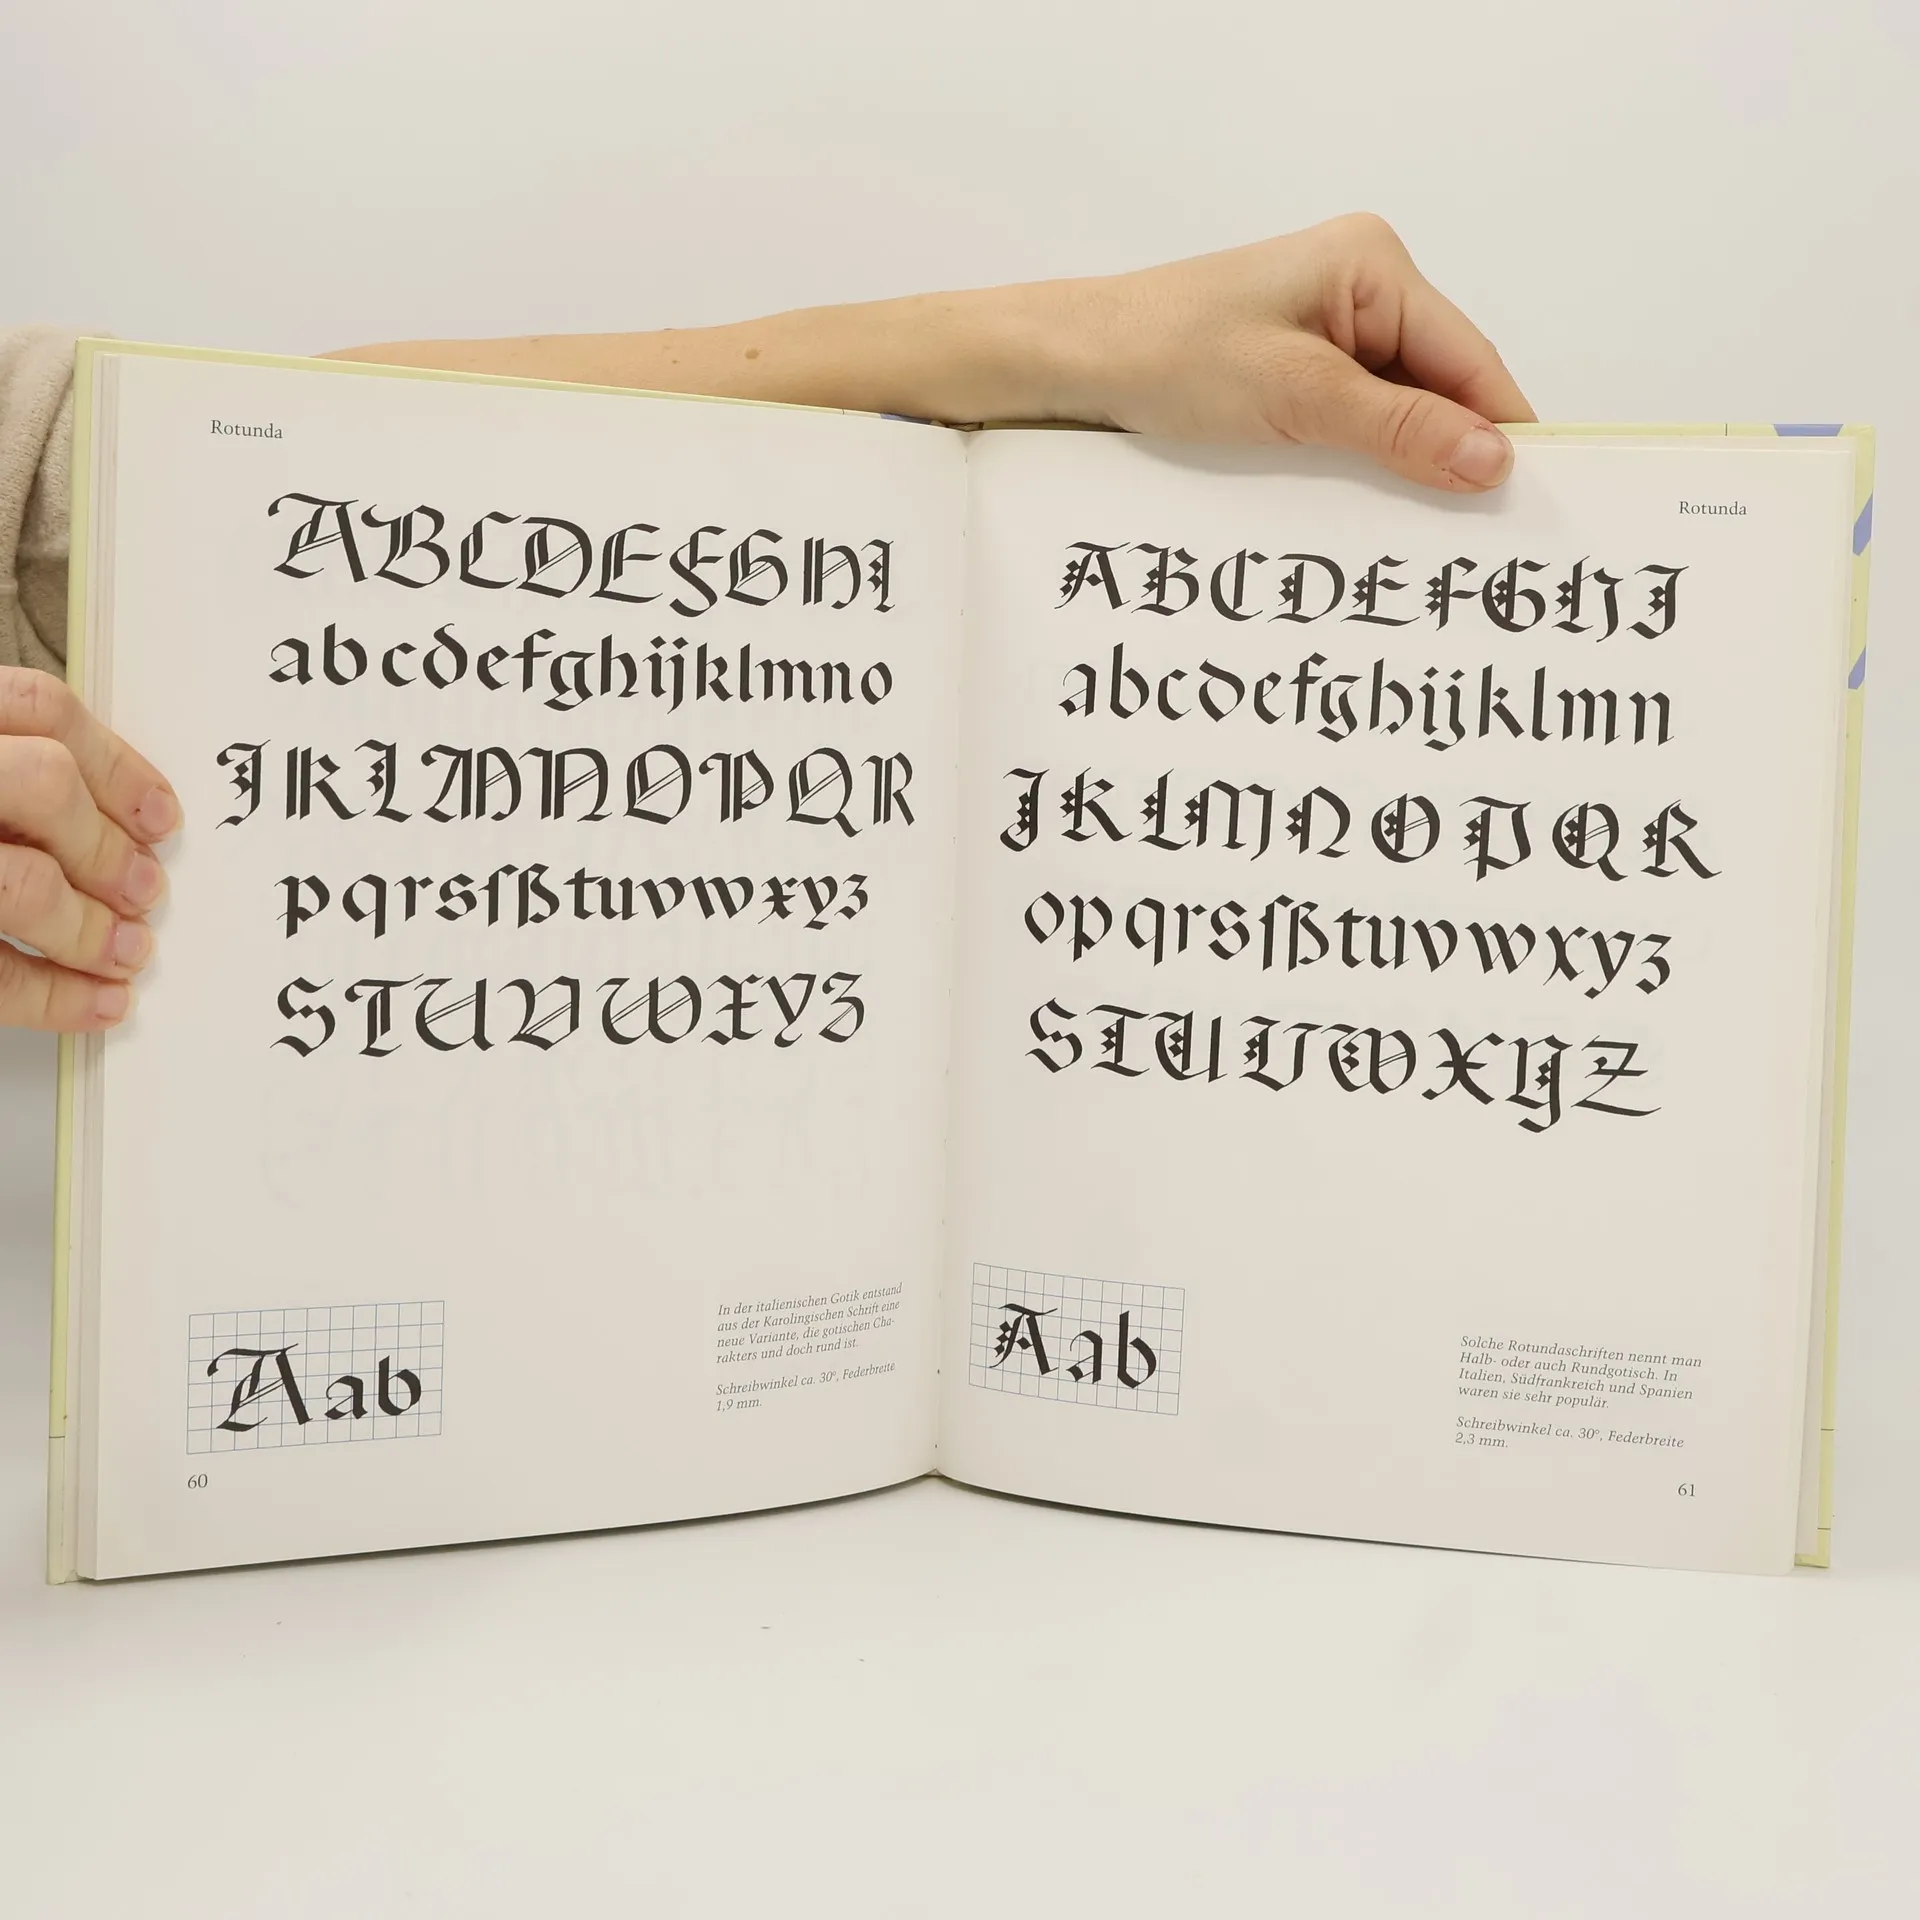 Rotunda
ABCDEFGHI
abcdefghijklmno
JKLMNOPQR
pqrsſßtuvwxyz
STUVWXYZ
Aab
In der italienischen Gotik entstand
aus der Karolingischen Schrift eine
neue Variante, die gotischen Cha-
rakters und doch rund ist.
Schreibwinkel ca. 30°, Federbreite
1,9 mm.
60
Rotunda
ABCDEFGHI
abcdefghijklmn
JKLMNOPQR
opqrsſßtuvwxyz
STUVWXYZ
Aab
Solche Rotundaschriften nennt man
Halb- oder auch Rundgotisch. In
Italien, Südfrankreich und Spanien
waren sie sehr populär.
Schreibwinkel ca. 30°, Federbreite
2,3 mm.
61